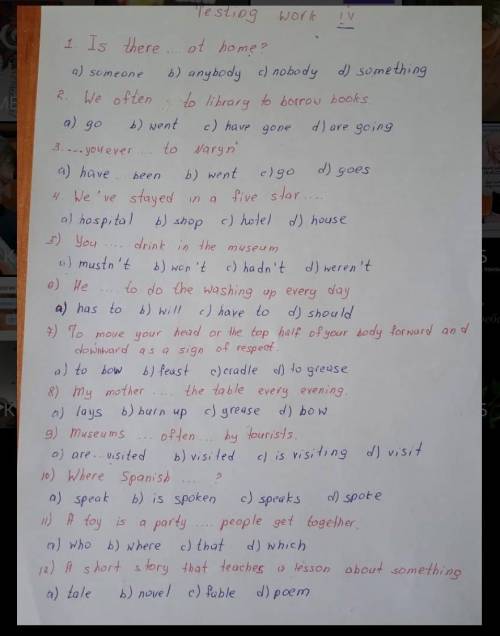 Testing work IV
1. Is there ... at home?
a) someone b) anybody c) nobody d) something
2. We often . to library to borrow books
a) go b) went c) have gone d) are going
3. ....you ever ... to Naryn
a) have.. been b) went c) go d) goes
4. We've stayed in a five star ....
a) hospital b) shop c) hotel d) house
5) You .... drink in the museum
a) mustn't b) won't c) hadn't d) weren't
6) He .... to do the washing up every day
a) has to b) will c) have to d) should
7) To move your head or the top half of your body forward and
downward as a sign of respect.
a) to bow b) feast c) cradle d) to grease
8) My mother .... the table every evening.
a) lays b) burn up c) grease d) bow
9) Museums ... often ... by tourists.
a) are ... visited b) visited c) is visiting d) visit
10) Where Spanish .... ?
a) speak b) is spoken c) speaks d) spoke
11) A toy is a party .... people get together.
a) who b) where c) that d) which
12) A short story that teaches a lesson about something
a) tale b) novel c) fable d) poem